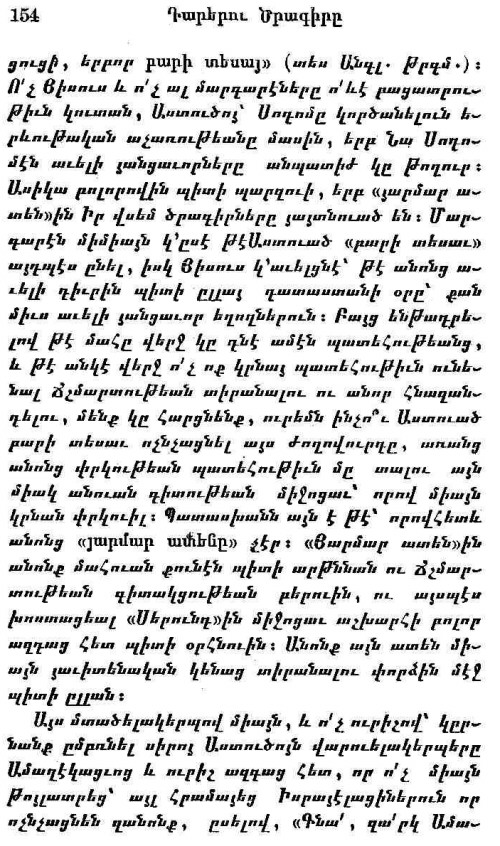 154 Դարերու Ծրագիրը
ցուցի, երբոր բարի տեսայ» (տես Անգլ. թրգմ.)։
Ո՛չ Յիսուս և ո՛չ ալ մարգարէները ո՛ևէ բացատրու-
թիւն կուտան, Աստուծոյ՝ Սոդոմը կործանելուն ե-
րևութական աչառութեանը մասին, երբ Նա Սոդո-
մէն աւելի յանցաւորները անպատիժ կը թողուր։
Ասիկա բոլորովին պիտի պարզուի, երբ «յարմար ա-
տեն»ին Իր վսեմ ծրագիրները յայտնուած են։ Մար-
գարէն միմիայն կ՚ըսէ թէԱստուած «բարի տեսաւ»
այդպէս ընել, իսկ Յիսուս կ՚աւելցնէ՝ թէ անոնց ա-
ւելի դիւրին պիտի ըլլայ դատաստանի օրը՝ քան
միւս աւելի յանցաւոր եղողներուն։ Բայց ենթադրե-
լով թէ մահը վերջ կը դնէ ամէն պատեհութեանց,
և թէ անկէ վերջ ո՛չ ոք կրնայ պատեհութիւն ունե-
նալ Ճշմարտութեան տիրանալու ու անոր Հնազան-
դելու, մենք կը Հարցնենք, ուրեմն ինչո՞ւ Աստուած
բարի տեսաւ ոչնչացնել այս ժողովուրդը, առանց
անոնց փրկութեան պատեհութիւն մը տալու այն
միակ անուան գիտութեան միջոցաւ՝ որով միայն
կրնան փրկուիլ։ Պատասխանն այն է թէ՝ որովհետև
անոնց «յարմար ատենը» չէր։ «Յարմար ատեն»ին
անոնք մահուան քունէն պիտի արթննան ու Ճշմար-
տութեան գիտակցութեան բերուին, ու այսպէս
խոստացեալ «Սերունդ»ին միջոցաւ աշխարհի բոլոր
ազդաց Հետ պիտի օրհնուին։ Անոնք այն ատեն մի-
այն յաւիտենական կենաց տիրանալու փորձին մէջ
պիտի ըլլան։
Այս մտածելակերպով միայն, և ո՛չ ուրիշով՝ կըր-
նանք ըմբռնել սիրոյ Աստուծոյն վարուելակերպերը
Ամաղէկացւոց և ուրիշ ազգաց Հետ, որ ո՛չ միայն
թոյլատրեց՝ այլ Հրամայեց Իսրայէլացիներուն որ
ոչնչացնեն զանոնք, ըսելով, «Գնա՛, զա՛րկ Ամա-